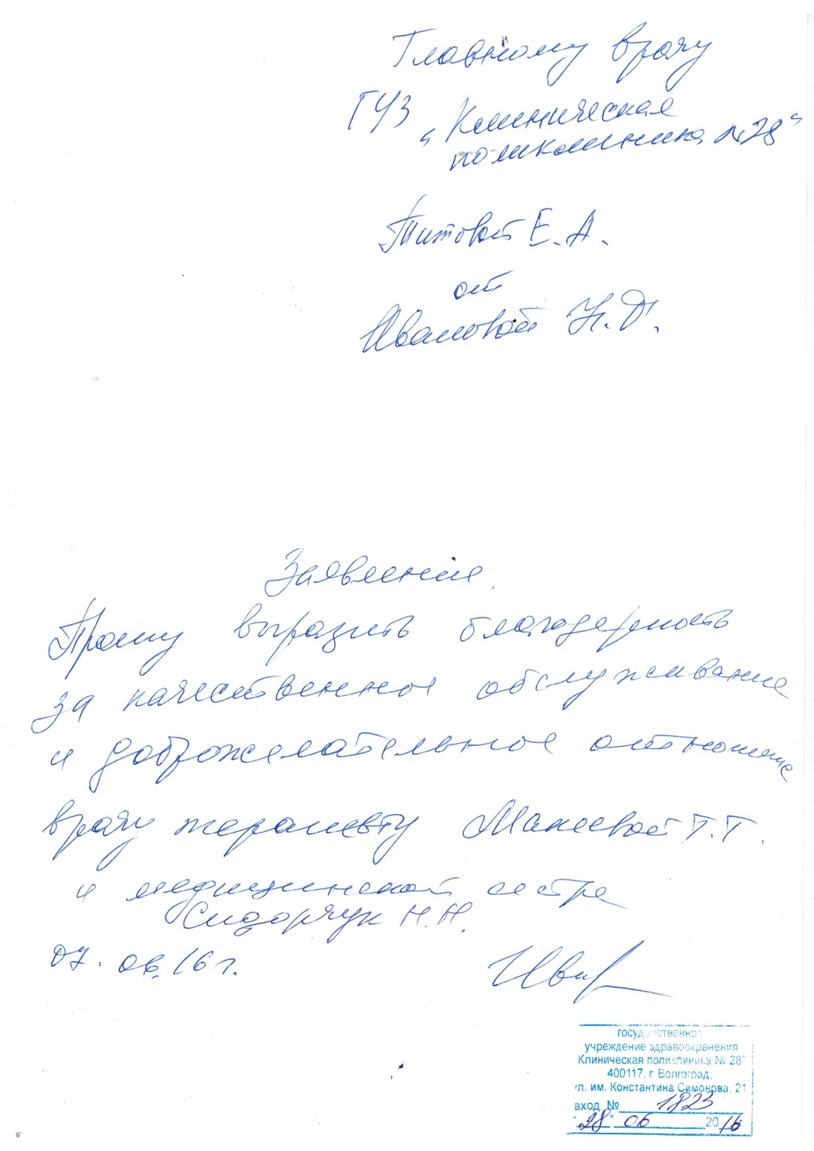 Главному врачу
ГУЗ "Клиническая
поликлиника №28"
Титовой Е.А.
от
Ивановой Н.Д.
Заявление.
Прошу выразить благодарность
за качественное обслуживание
и доброжелательное отношение
врачу терапевту Макеевой Т.Г.
и медицинской сестре
Сидорчук Н.Н.
07.06.16 г.
государственное
учреждение здравоохранения
Клиническая поликлиника № 28"
400117, г Волгоград,
ул. им. Константина Симонова, 21
вход. № 1823
"28" 06 2016